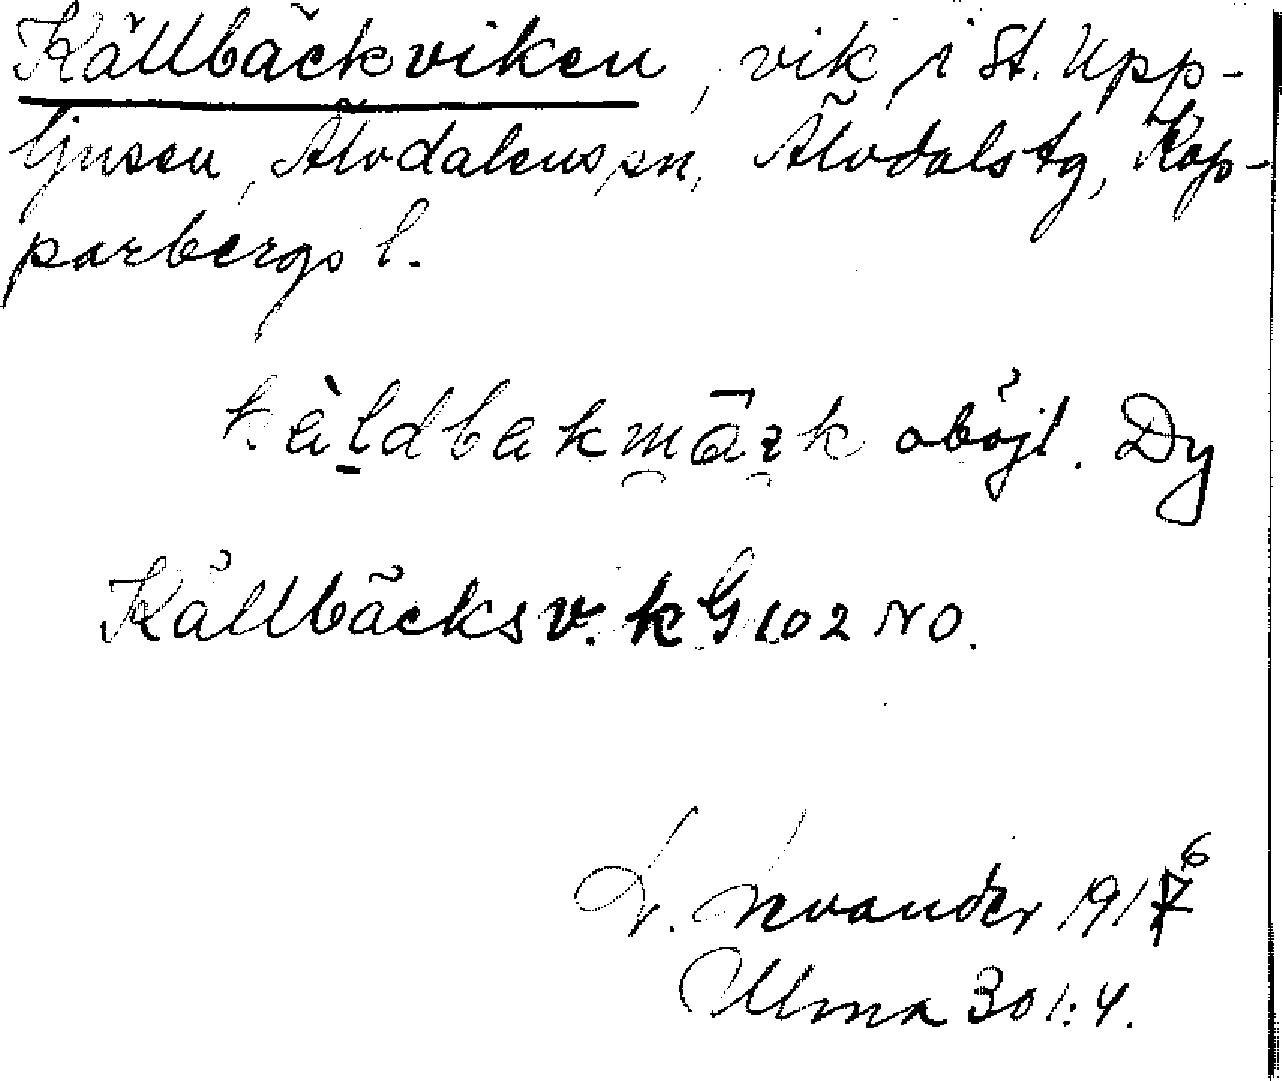 Källbäckviken, vik i St. Upp-
ljusen, Älvdalens sn, Älvdals tg, Kop-
parbergs l.
kàldbakmārk oböjl. Dy
Källbäcksv. k G 102 NO.
L. Levander 1917 6
Ulma 301:4.